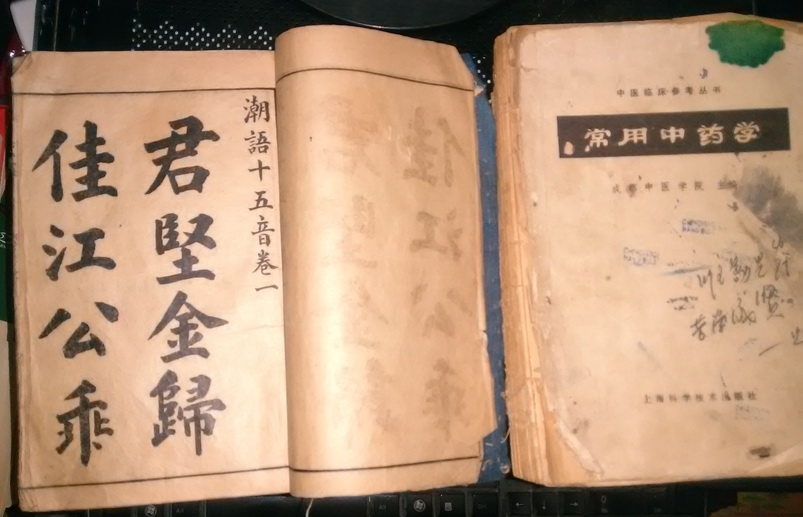 潮語十五音卷一
君堅金歸
佳江公乖
中医临床参考丛书
常用中药学
成都中医学院 主编
上海科学技术出版社